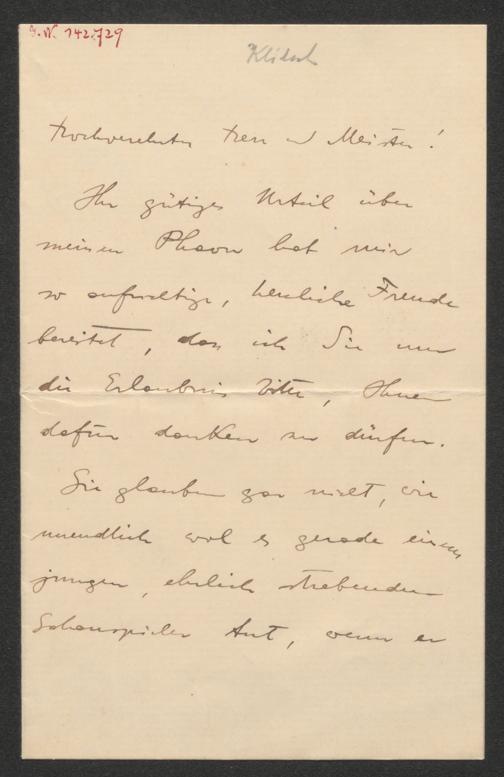 I.N. 142.729
Klitsch
Hochverehrter Herr und Meister!
Ihr gütiges Urteil über
meinen Phaon hat mir
so aufrichtige, herzliche Freude
bereitet, dass ich Sie um
die Erlaubnis bitte, Ihnen
dafür danken zu dürfen.
Sie glauben gar nicht, wie
unendlich wol es gerade einem
jungen, ehrlich strebenden
Schauspieler tut, wenn er